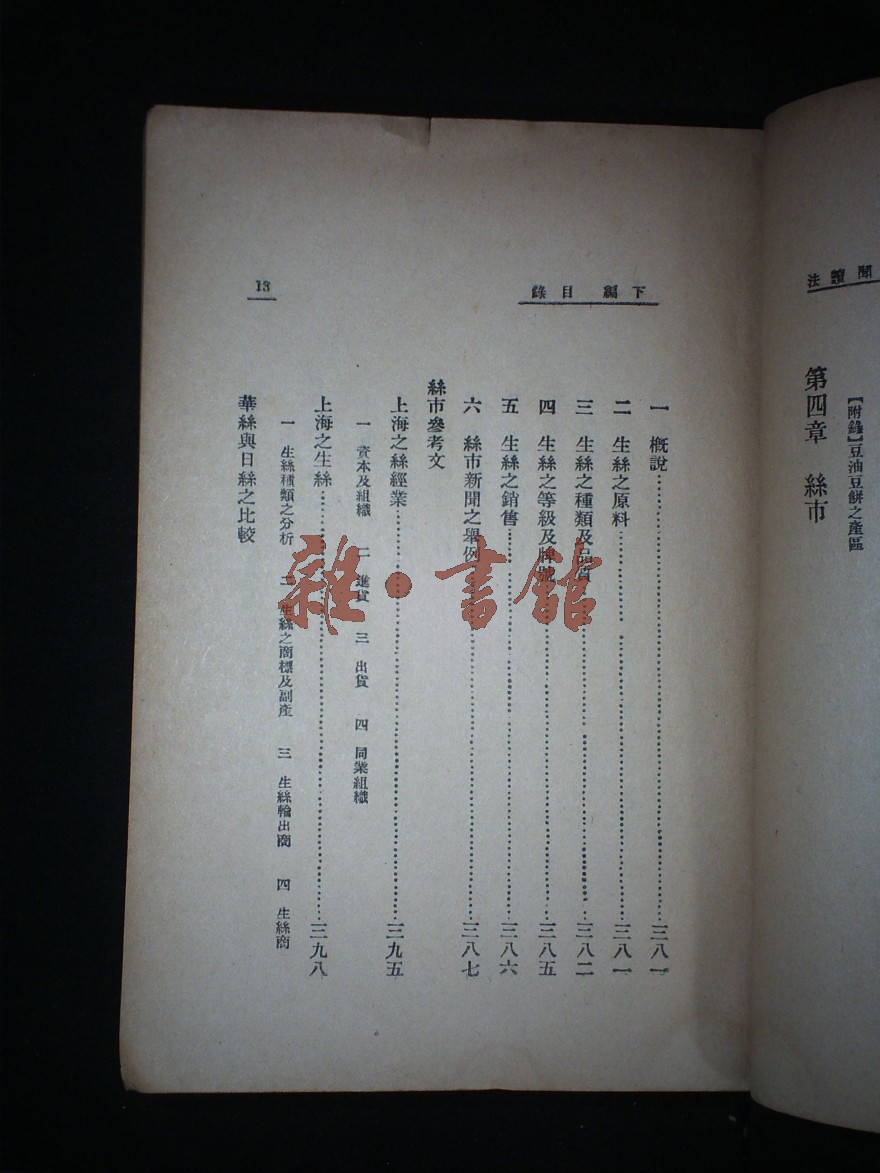 聞讀法
第四章　絲市
【附錄】豆油豆餅之產區
下編　目錄
13
一　概說……三八一
二　生絲之原料……三八一
三　生絲之種類及品質……三八二
四　生絲之等級及牌號……三八五
五　生絲之銷售……三八六
六　絲市新聞之舉例……三八七
絲市參考文
上海之絲經業……三九五
一　資本及組織　二　進貨　三　出貨　四　同業組織
上海之生絲……三九八
一　生絲種類之分析　二　生絲之商標及副產　三　生絲輸出商　四　生絲商
華絲與日絲之比較
雜·書館